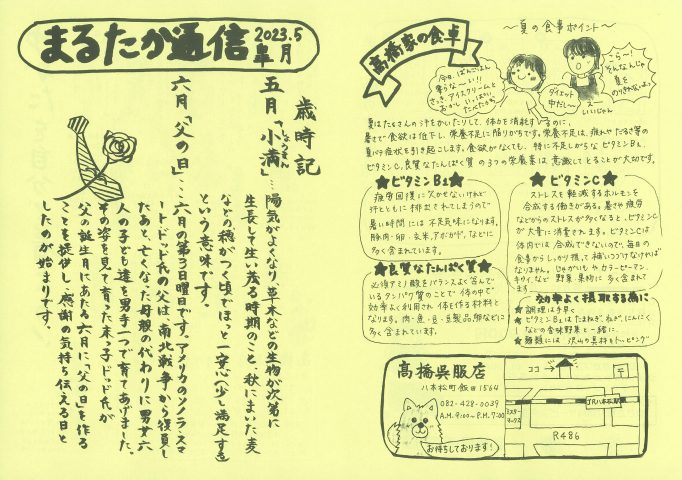 まるたか通信
2023.5
皐月
歳時記
五月「小満」…
しょうまん
陽気がよくなり、草木などの生物が次第に
生長して生い茂る時期のこと、秋にまいた麦
などの穂がつく頃でほっと一安心(少し満足する)
という意味です。
六月「父の日」…
六月の第3日曜日です。アメリカのソノラ・スマ
ート・ドッド氏の父は南北戦争から復員し
たあと、亡くなった母親の代わりに男女六
人の子ども達を男手一つで育てあげました。
その姿を見て育った末っ子ドッド氏が
父の誕生月にあたる六月に「父の日」を作る
ことを提供し、感謝の気持ち伝える日と
したのが始まりです。
高橋家の食卓
〜夏の食事ポイント〜
今日、ばんごはん
要らな〜い!!
さっき、アイスクリームと
おかし いっぱい
たべたから
ダイエット
中だし〜
こら〜
そんなんじゃ
夏を
のりきれないよ!
えー
いいじゃん
夏はたくさんの汗をかいたりして、体力を消耗するのに、
暑さで食欲は低下し、栄養不足に陥りがちです。栄養不足は、疲れやだるさ等の
夏バテ症状を引き起こします。食欲がなくても、特に不足しがちなビタミンB1、
ビタミンC、良質なたんぱく質の3つの栄養素は意識してとることが大切です。
★ビタミンB1★
疲労回復に欠かせないけれど
汗とともに排出されてしまうので
暑い時間には不足気味になります。
豚肉・卵・玄米、アボガド、などに
多く含まれています。
★良質なたんぱく質★
必須アミノ酸をバランスよく含んで
いるタンパク質のことで体の中で
効率よく利用され体を作る材料と
なります。肉・魚・豆・豆製品・卵などに
多く含まれています。
★ビタミンC★
ストレスを軽減するホルモンを
合成する働きがある。暑さや疲労
などからのストレスが多くなると、ビタミンC
が大量に消費されます。ビタミンCは
体内では合成できないので、毎日の
食事からしっかり摂って補いつづけなければ
なりません。じゃがいもやカラーピーマン、
キウイなど野菜果物に多く含まれて
います
効率よく摂取する為に
★調理は手早く
★ビタミンB1は「たまねぎ、ねぎ、にんにく
」などの香味野菜と一緒に
★麺類には沢山の具材をトッピング
高橋呉服店
八本松町飯田1564
082-428-0039
A.M.9:00〜P.M.7:00
お待ちしております!
ココ
〒
JR八本松駅
ミスター
マックス
R486